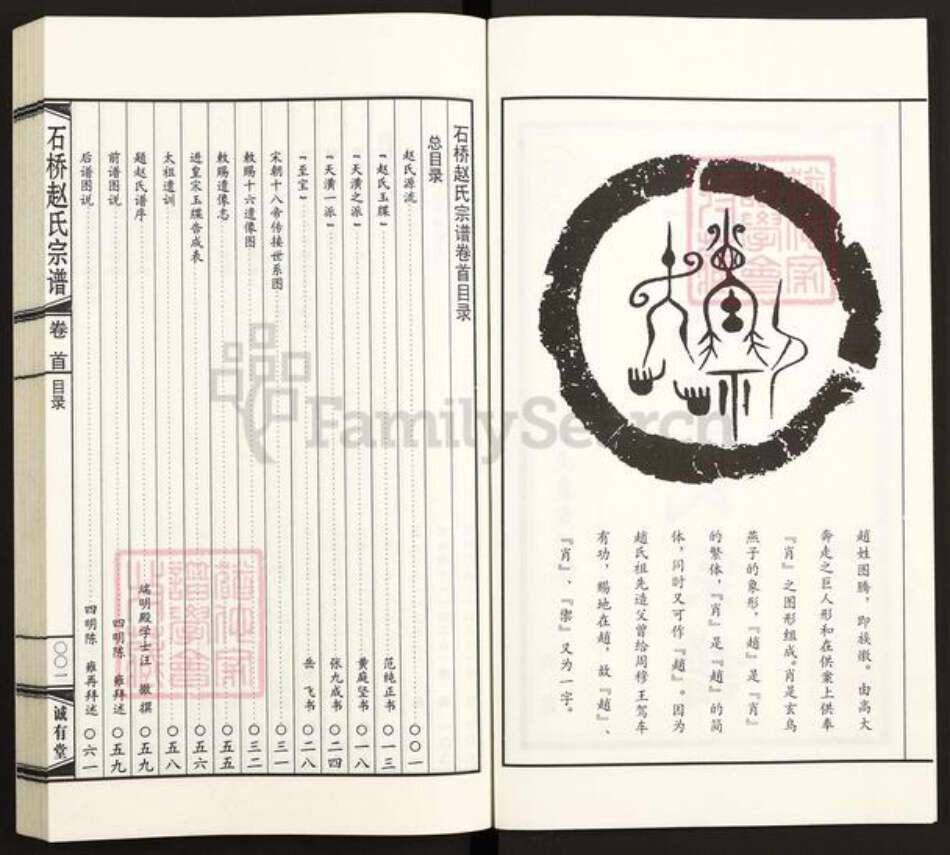 趙姓图腾，即族徽。由高大
奔走之巨人形和在供案上供奉
『肖』之图形组成。肖是玄鸟
燕子的象形，『趙』是『肖』
的繁体，『肖』是『趙』的简
体，同时又可作『趙』。因为
趙氏祖先造父曾给周穆王驾车
有功，赐地在趙，故『趙』、
又为一字。
石桥赵氏宗谱卷首目录
总目录
赵氏源流 〇〇一
『赵氏玉牒』 范纯正书 〇一三
『天潢之派』 黄庭坚书 〇一八
『天潢一派』 张九成书 〇二四
『至宝』 岳 飞书 〇二八
宋朝十八帝传接世系图 〇三一
敕赐十六遗像图 〇三二
敕赐遗像志 〇五五
进皇宋玉牒告成表 〇五六
太祖遗训 〇五八
题赵氏谱序 端明殿学士汪 撰 〇五九
前谱图说 四明陈 雍拜述 〇五九
后谱图说 四明陈 雍再拜述 〇六一
石桥赵氏宗谱
卷首
目录
〇〇一
诚有堂
FamilySearch